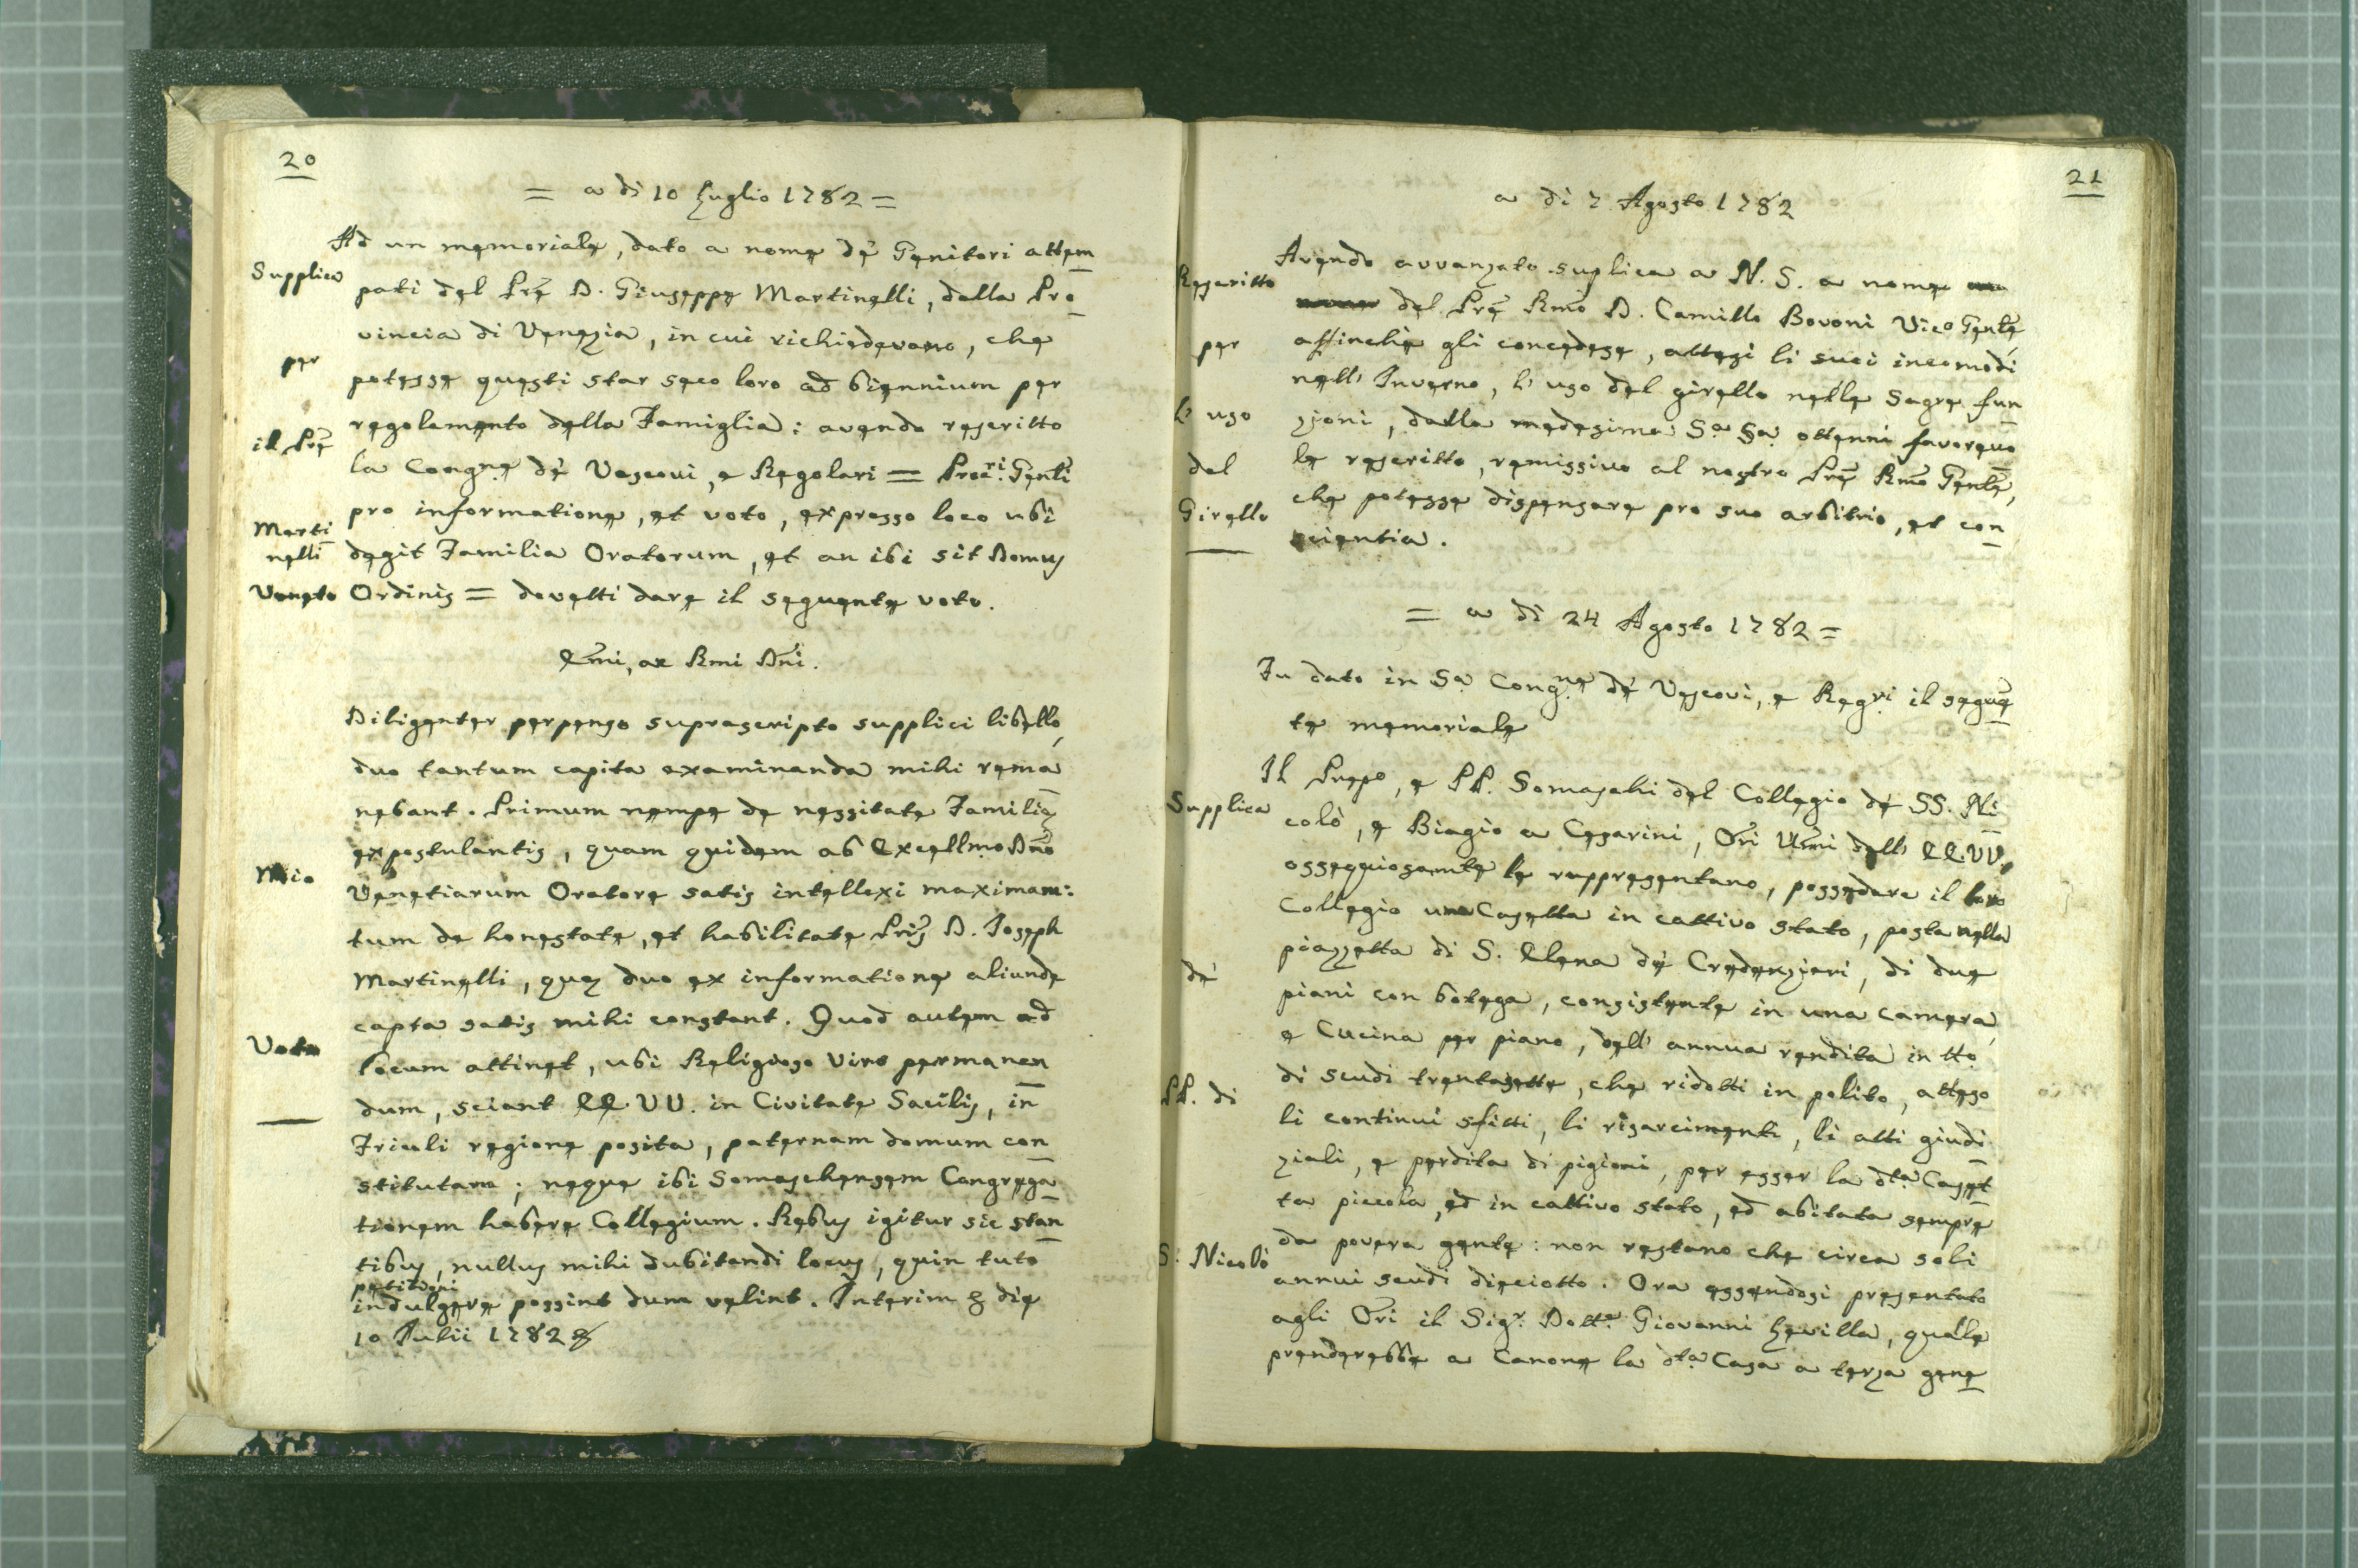 20
= a di 10 Luglio 1782 =
Ad un memoriale, dato a nome de' Genitori attem
Supplica
pati del Prẽ D. Giuseppe Martinelli, della Pro
vincia di Venezia, in cui richiedevano, che
per
potesse questi star seco loro ad biennium per
regolamento della Famiglia: avendo rescritto
il Prẽ
la Congne de' Vescovi, e Regolari = Procri Genli
pro informatione, et voto, expresso loco ubi
Marti
nelli
degit Familia Oratorum, et an ibi sit Domus
Veneto
Ordinis = dovetti dare il seguente voto.
Emi, ac Rmi Dni.
Diligenter perpenso suprascripto supplici libello,
duo tantum capita examinanda mihi rema
nebant. Primum nempe de nessitate Familię
expostulantis, quam quidem ab Excellmo Dno
Mio
Venetiarum Oratore satis intellexi maximam:
tum de honestate, et habilitate Pris D. Joseph
Martinelli, quę duo ex informatione aliunde
capta satis mihi constant. Quod autem ad
Voto
locum attinet, ubi Religioso Viro permanen
dum, sciant EE. VV. in Civitate Sacilis, in
Friuli regione posita, paternam domum con
stitutam; neque ibi Somaschensem Congrega
tionem habere Collegium. Rebus igitur sic stan
tibus, nullus mihi dubitandi locus, quin tuto
petitioni
indulgere possint dum velint. Interim &c die
10 Julii 1782 &c
21
a di 7 Agosto 1782
Avendo avvanzato suplica a N. S. a nome
Rescritto
del Prẽ Rmo D. Camillo Bovoni Vico Genle,
affinchè gli concedese, attesi li suoi incomodi
per
nell' Inverno, l' uso del girello nelle Sagre fun
l' uso
zioni, dalla medesima Sa Sa ottenni favorevo
del
le rescritto, remissivo al nostro Prẽ Rmo Genle,
Girello
che potesse dispensare pro suo arbitrio, et con
scientia.
= a di 24 Agosto 1782 =
Fu dato in Sa Congne de' Vescovi, e Regri il seguẽ
te memoriale
Il Prepo, e PP. Somaschi del Collegio de' SS. Ni
Supplica
colò, e Biagio a Cesarini, Ori Umi dell' EE. VV.,
ossequiosamte le rappresentano, possedere il loro
Collegio una Casetta in cattivo stato, posta nella
piazzetta di S. Elena de' Credenzieri, di due
de'
piani con botega, consistente in una camera,
e Cucina per piano, dell' annua rendita in tto
PP. di
di scudi trentasette, che ridotti in polito, atteso
li continui sfitti, li risarcimenti, li atti giudi
ziali, e perdita di pigioni, per esser la dta Caset
ta piccola, ed in cattivo stato, ed abitata sempre
S: Nicolò
da povera gente: non restano che circa soli
annui scudi dieciotto. Ora essendosi presentato
agli Ori il Sigr. Dotte Giovanni Levilla, qualle
prenderebbe a Canone la dta Casa a terza gene